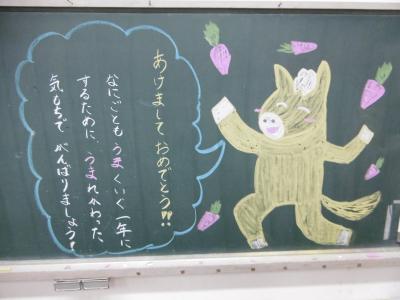 あけまして おめでとう!!
なにごとも うまくいく一年に
するために、うまれかわった
気もちで がんばりましょう!